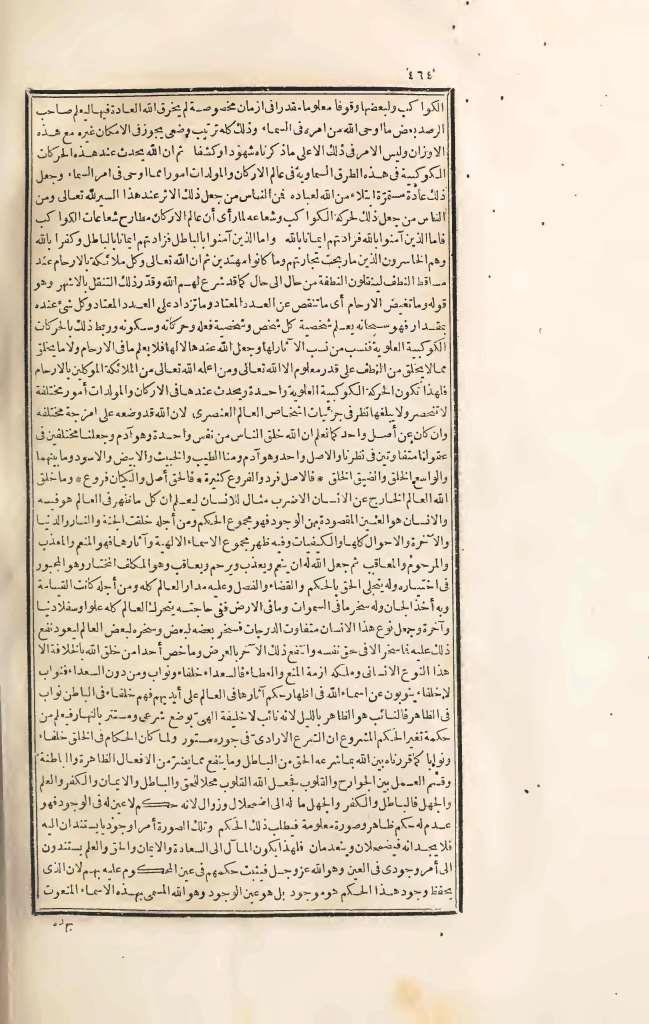 ٤٦٤
الكواكب ولبعضها وقوفا معلوما مقدرا فى ازمان مخصوصة لم يخرق الله العادة فيها ليعلم صاحب
الرصد بعض ما اوحى الله من امره فى السماء وذلك كله ترتيب وضعى يجوز فى الامكان غيره مع هذه
الاوزان وليس الامر فى ذلك الا على ما ذكرناه شهودا وكشفا ثم ان الله يحدث عند هذه الحركات
الكوكبية فى هذه الطرق السماوية فى عالم الاركان والمولدات امورا مما اوحى فى امر السماء وجعل
ذلك عادة مستمرة ابتلاء من الله لعباده فمن الناس من جعل ذلك الاثر عند هذا السير لله تعالى ومن
الناس من جعل ذلك لحركة الكواكب وشعاعه لما رأى أن عالم الاركان مطارح شعاعات الكواكب
فاما الذين آمنوا بالله فزادتهم ايمانا بالله واما الذين آمنوا بالباطل فزادتهم ايمانا بالباطل وكفرا بالله
وهم الخاسرون الذين ما ربحت تجارتهم وما كانوا مهتدين ثم ان الله تعالى وكل ملائكة بالارحام عند
مساقط النطف لينقلون النطفة من حال الى حال كما قد شرع لهم الله وقدّر ذلك التنقل بالاشهر وهو
قوله وما تغيض الارحام أى ما تنقص عن العدد المعتاد وما تزداد على العدد المعتاد وكل شئ عنده
بمقدار فهو سبحانه يعلم شخصية كل شخص وشخصية فعله وحركاته وسكونه وربط ذلك بالحركات
الكوكبية العلوية فنسب من نسب الآثار لها وجعل الله عندها لا لها فلا يعلم ما فى الارحام ولا ما يخلق
مما لا يخلق من النطف على قدر معلوم الا الله تعالى ومن اعلمه الله تعالى من الملائكة الموكلين بالارحام
فلهذا تكون الحركة الكوكبية العلوية واحدة ويحدث عندها فى الاركان والمولدات أمور مختلفة
لا تنحصر ولا يبلغها نظر فى جزئيات اشخاص العالم العنصرى لان الله قد وضعه على امزجة مختلفة
وان كان عن أصل واحد كما نعلم ان الله خلق الناس من نفس واحدة وهو آدم وجعلنا مختلفين فى
عقولنا متفاوتين فى نظرنا والاصل واحد وهو آدم ومنا الطيب والخبيث والابيض والاسود وما بينهما
والواسع الخلق والضيق الخلق * فالاصل فرد والفروع كثيرة * فالحق أصل والكيان فروع * وما خلق
الله العالم الخارج عن الانسان الا ضرب مثال للانسان ليعلم ان كل ما ظهر فى العالم هو فيه
والانسان هو العين المقصودة من الوجود فهو مجموع الحكم ومن أجله خلقت الجنة والنار والدنيا
والآخرة والاحوال كلها والكيفيات وفيه ظهر مجموع الاسماء الالهية وآثارها فهو المنعم والمعذب
والمرحوم والمعاقب ثم جعل الله له ان ينعم ويعذب ويرحم ويعاقب وهو المكلف المختار وهو المجبور
فى اختياره وله يتجلى الحق بالحكم والقضاء والفصل وعليه مدار العالم كله ومن أجله كانت القيامة
وبه أخذ الجان وله سخر ما فى السموات وما فى الارض ففى حاجته يتحرك العالم كله علوا وسفلا دنيا
وآخرة وجعل نوع هذا الانسان متفاوت الدرجات فسخر بعضه لبعض وسخره لبعض العالم ليعود نفع
ذلك عليه فما سخر الا فى حق نفسه وانتفع ذلك الآخر بالعرض وما خص أحدا من خلق الله بالخلافة الا
هذا النوع الانسانى وملكه ازمة المنع والعطاء فالسعداء خلفاء ونواب ومن دون السعداء فنواب
لا خلفاء ينوبون عن اسماء الله فى اظهار حكم آثارها فى العالم على أيديهم فهم خلفاء فى الباطن نواب
فى الظاهر فالنائب هو الظاهر بالليل لانه نائب لا خليفة الهىّ بوضع شرعى ومستتر بالنهار فيعلم من
حكمة تغير الحكم المشروع ان الشرع الارادىّ فى جوره مستور ولما كان الحكام فى الخلق خلفاء
ونوابا كما قررناه بين الله بما شرعه الحق من الباطل وما ينفع مما يضر من الافعال الظاهرة والباطنة
وقسم العمل بين الجوارح والقلوب فجعل الله القلوب محلا للحق والباطل والايمان والكفر والعلم
والجهل فالباطل والكفر والجهل ما له الى اضمحلال وزوال لانه حكم لا عين له فى الوجود فهو
عدم له حكم ظاهر وصورة معلومة فيطلب ذلك الحكم وتلك الصورة أمرا وجوديا يستندان اليه
فلا يجدانه فيضمحلان وينعدمان فلهذا يكون المآل الى السعادة والايمان والحق والعلم يستندون
الى أمر وجودى فى العين وهو الله عز وجل فيثبت حكمهم فى عين المحكوم عليه بهم لان الذى
يحفظ وجود هذا الحكم هو موجود بل هو عين الوجود وهو الله المسمى بهذه الاسماء المنعوت